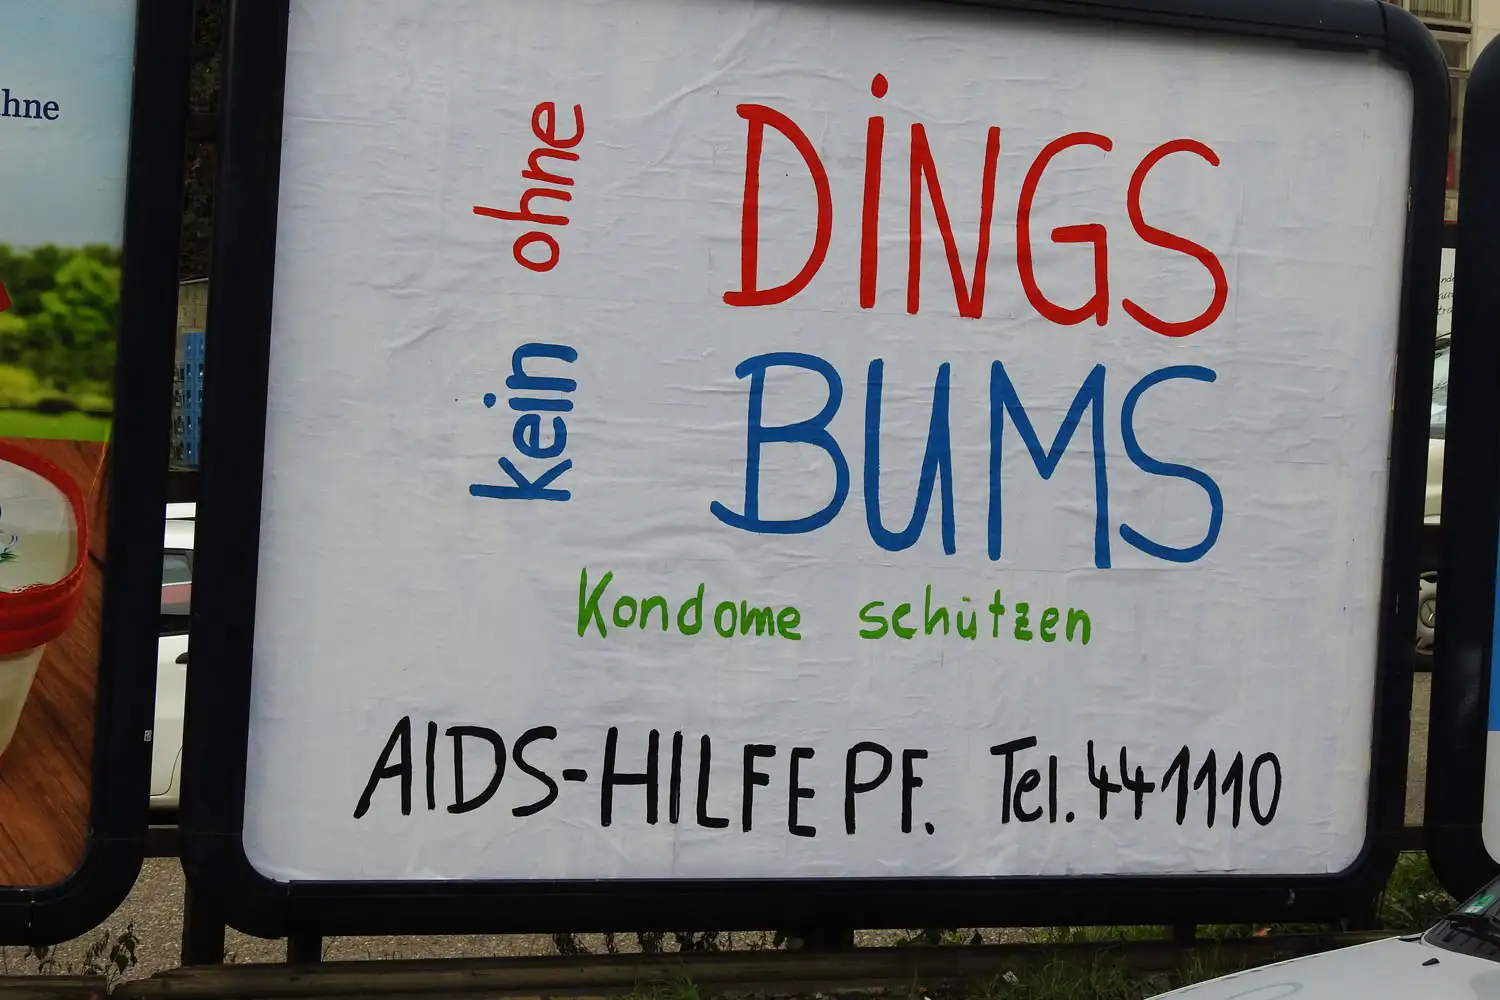 hne
ohne DINGS
kein BUMS
Kondome schützen
AIDS-HILFE PF. Tel. 441110